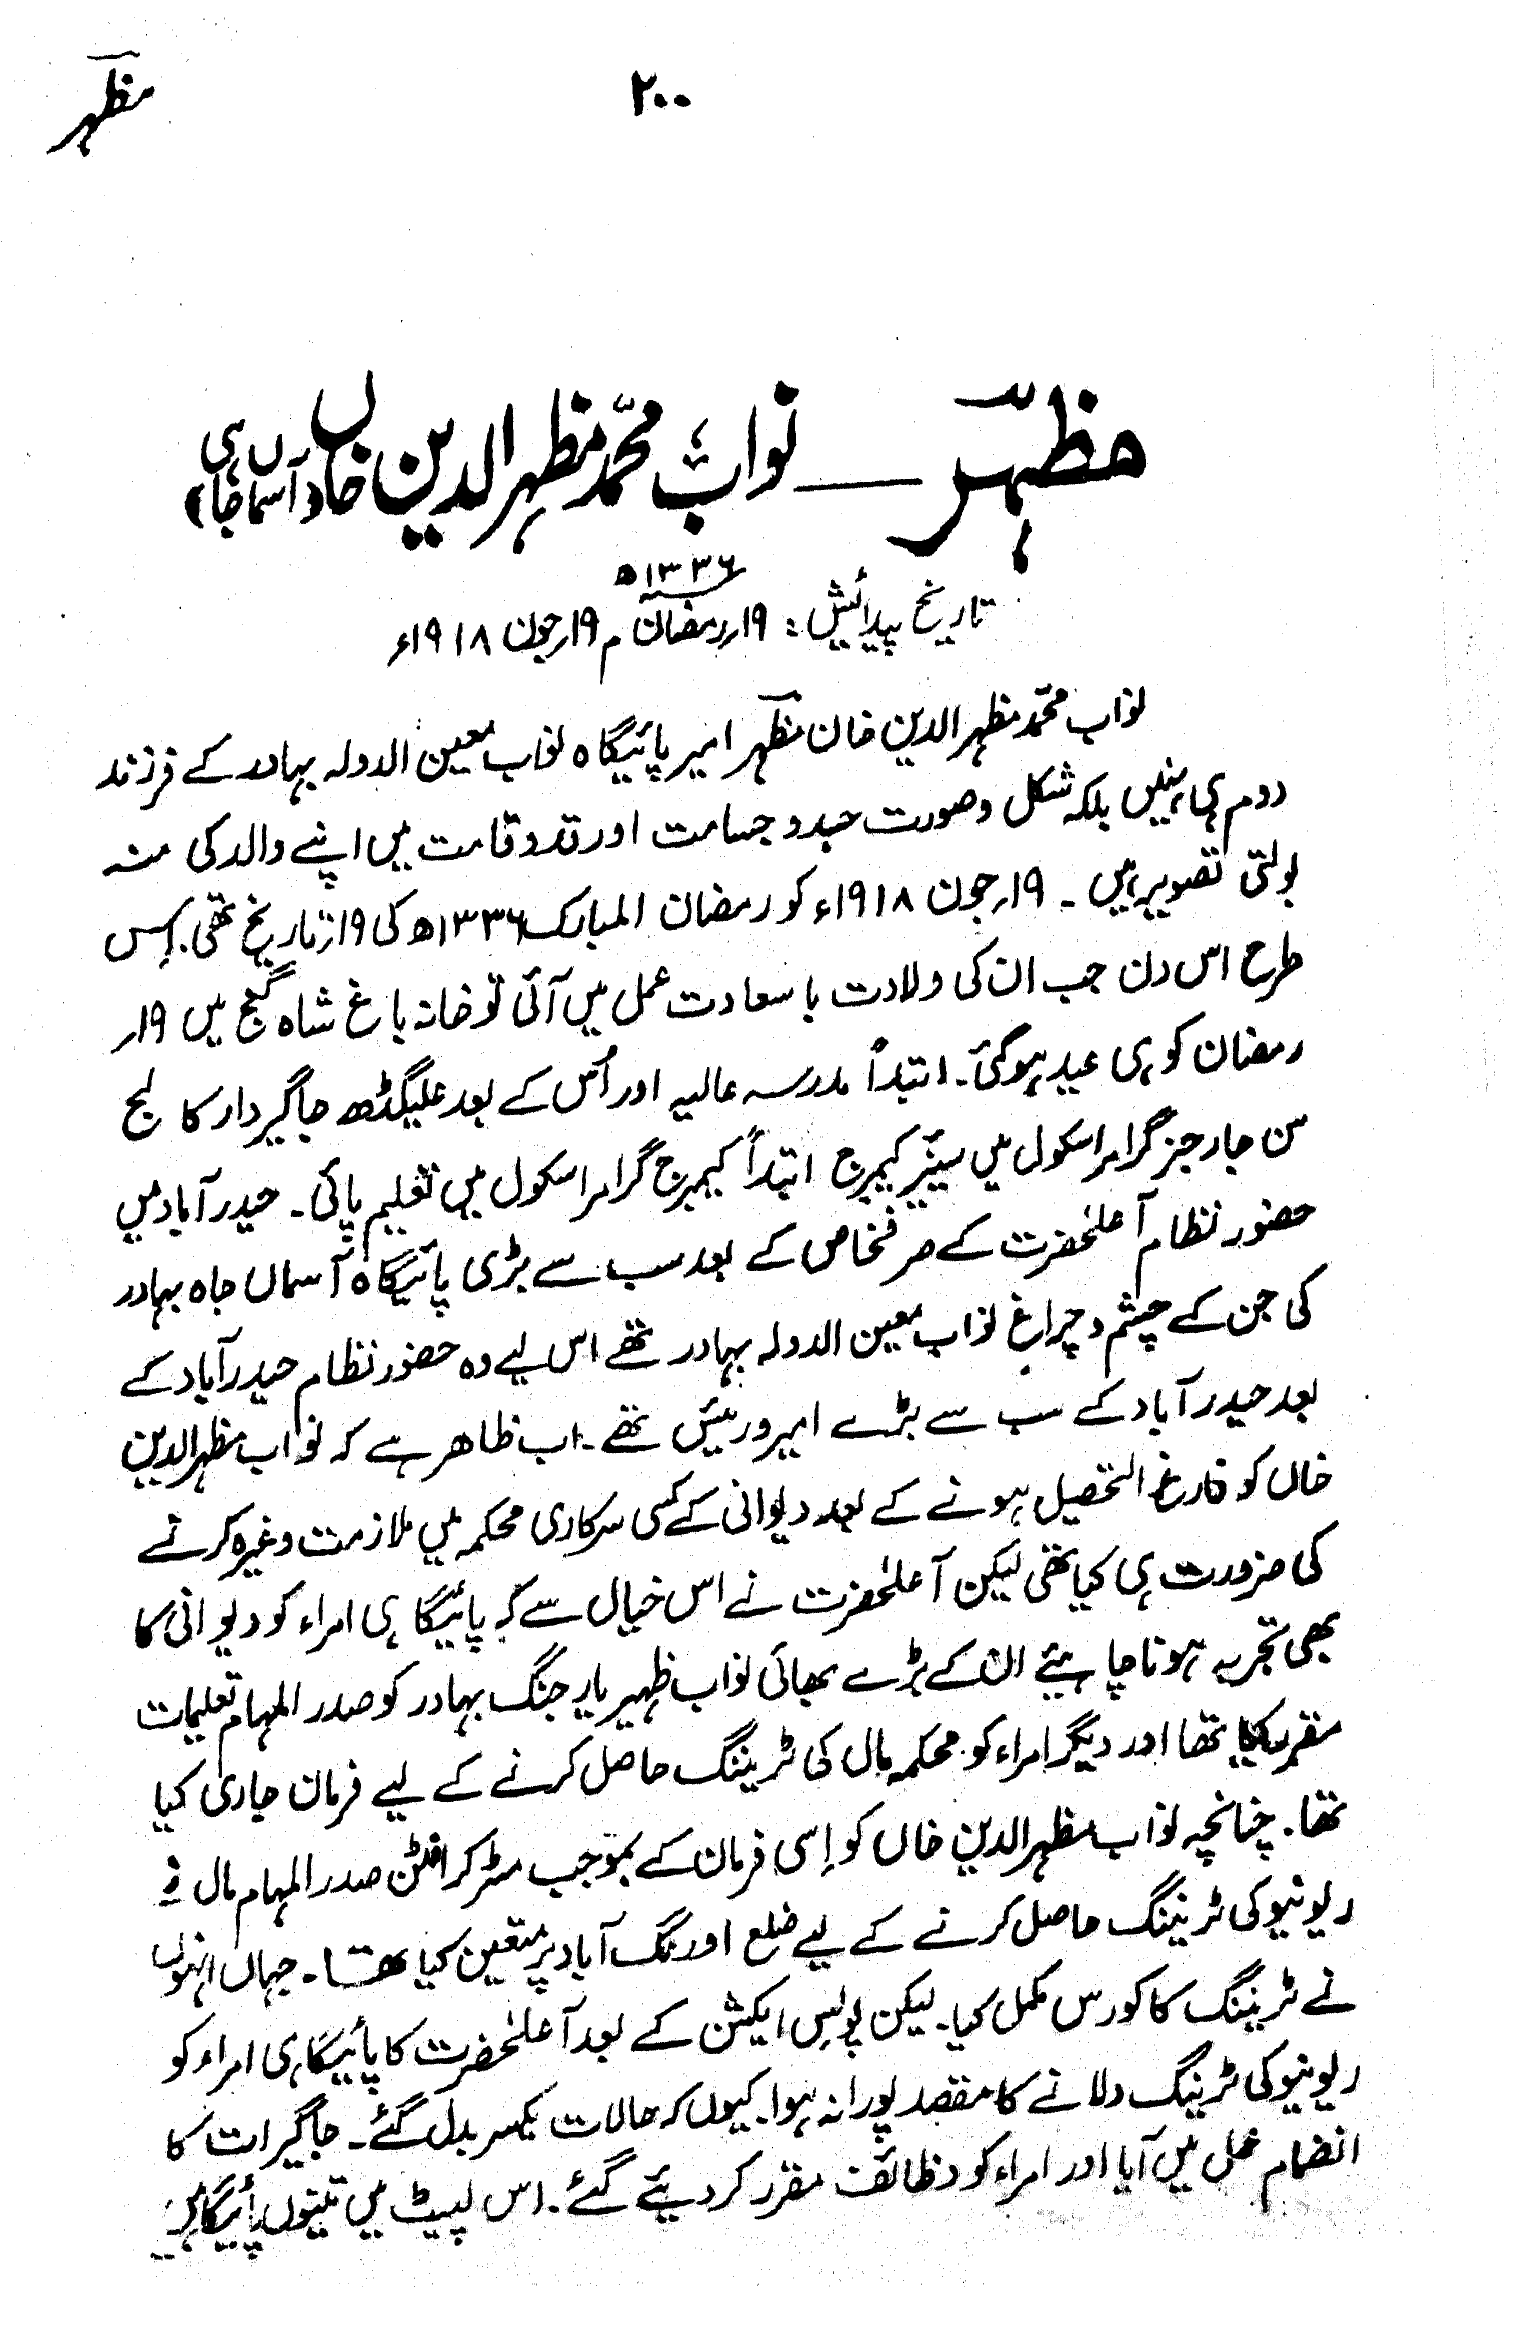 مظہر
۲۰۰
مظہرؔ ـــــ نواب محمد مظہر الدین خاں (آسماں جاہی)
۱۳۳۶ھ
تاریخ پیدائش: ۱۹؍رمضان م ۱۹؍جون ۱۹۱۸ء
نواب محمد مظہر الدین خان مظہر امیر پائیگاہ نواب معین الدولہ بہادر کے فرزند
دوم ہی نہیں بلکہ شکل و صورت جسد و جسامت اور قد و قامت میں اپنے والد کی منہ
بولتی تصویر ہیں ۔ ۱۹؍جون ۱۹۱۸ء کو رمضان المبارک ۱۳۳۶ھ کی ۱۹؍تاریخ تھی۔ اِس
طرح اس دن جب ان کی ولادت با سعادت عمل میں آئی تو خانہ باغ شاہ گنج میں ۱۹؍
رمضان کو ہی عید ہو گئی۔ ابتداً مدرسہ عالیہ اور اُس کے بعد علیگڈھ جاگیردار کالج
سن جارجز گرامر اسکول میں سینیر کیمبرج ابتداً کیمبرج گرامر اسکول میں تعلیم پائی۔ حیدرآباد میں
حضور نظام آعلحضرت کے صرفخاص کے بعد سب سے بڑی پائیگاہ آسماں جاہ بہادر
کی جن کے چشم و چراغ نواب معین الدولہ بہادر تھے اس لیے وہ حضور نظام حیدرآباد کے
بعد حیدرآباد کے سب سے بڑے امیر و رئیس تھے ۔ اب ظاھر ہے کہ نواب مظہر الدین
خاں کو فارغ التحصیل ہونے کے بعد دیوانی کے کسی سرکاری محکمہ میں ملازمت وغیرہ کرنے
کی ضرورت ہی کیا تھی لیکن آعلحضرت نے اس خیال سے کہ پائیگاہی امراء کو دیوانی کا
بھی تجربہ ہونا چاہیئے ان کے بڑے بھائی نواب ظہیر یار جنگ بہادر کو صدر المہام تعلیمات
مقرر کیا تھا اور دیگر امراء کو محکمہ مال کی ٹریننگ حاصل کرنے کے لیے فرمان جاری کیا
تھا۔ چنانچہ نواب مظہر الدین خاں کو اِسی فرمان کے بموجب مسٹر کرافٹن صدر المہام مال نے
ریونیو کی ٹریننگ حاصل کرنے کے لیے ضلع اورنگ آباد پر متعین کیا تھا۔ جہاں انہوں
نے ٹریننگ کا کورس مکمل کیا۔ لیکن پولیس ایکشن کے بعد آعلحضرت کا پائیگاہی امراء کو
ریونیو کی ٹریننگ دلانے کا مقصد پورا نہ ہوا۔ کیوں کہ حالات یکسر بدل گئے۔ جاگیرات کا
انضمام عمل میں آیا اور امراء کو وظائف مقرر کر دیئے گئے۔ اس لپیٹ میں تینوں پائیگاہیں